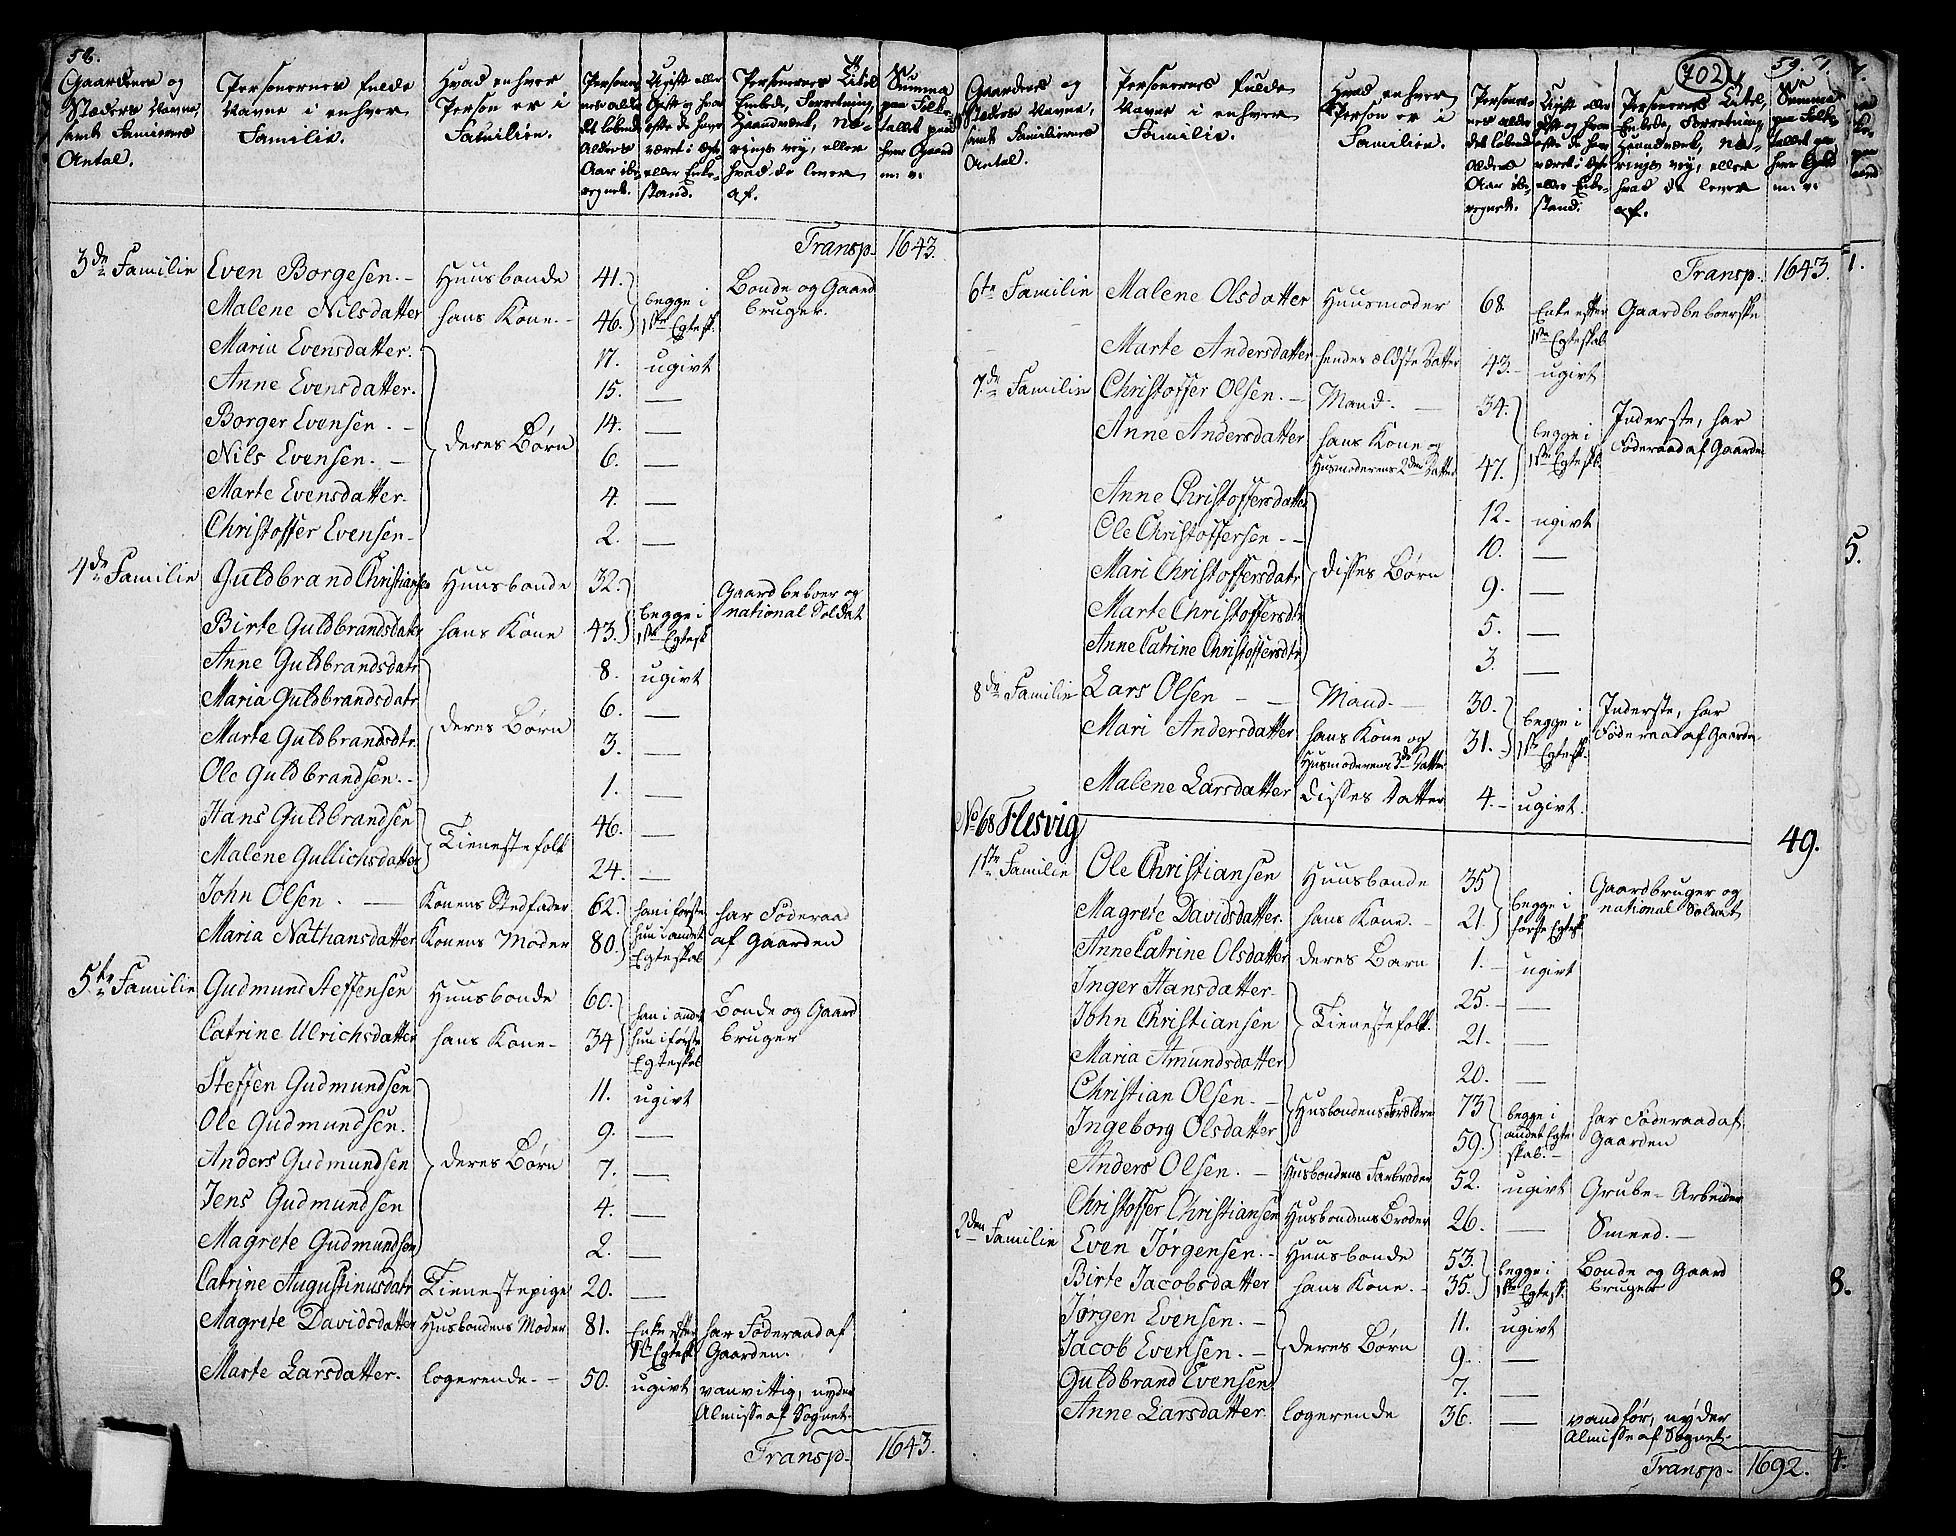 58.
Gaardenes og Stæders Navne, samt Familiernes Antal.
Personernes fulde Navne i enhver Familie.
Hvad enhver Person er i Familien.
Personernes alder det løbende Alders Aar iberegnet.
Ugift eller Gift og hvor ofte de have været i Ægte- eller Enkestand.
Personernes Titel, Embede, Forretning, Haandværk, Nærings vej, eller hvad de lever af.
Summa paa Folketallet paa hver Gaard
Transp. 1643.
3de Familie Even Borgesen. – Huusbonde 41. begge i 1ste Egtesk. Bonde og Gaardbruger.
Malene Nilsdatter hans Kone. – 46.
Maria Evensdatter. deres Børn 17. ugivt
Anne Evensdatter. 15. —
Borger Evensen. – 14. —
Nils Evensen. – 6. —
Marte Evensdatter. 4. —
Christoffer Evensen – 2. —
4de Familie Guldbrand Christiansen Huusbonde 32. begge i 1ste Egtesk Gaardbeboer og national Soldat
Birte Guldbrandsdatr hans Kone 43.
Anne Guldbrandsdatr deres Børn 8. ugivt
Maria Guldbrandsdatr 6. —
Marte Guldbrandsdtr. 3. —
Ole Guldbrandsen. – 1. —
Hans Guldbrandsen Tienestefolk 46. —
Malene Gullichsdatter 24. —
John Olsen. — Konens Stedfader 62. han i første hun i andet Egteskab har Føderaad af Gaarden
Maria Nathansdatter Konens Moder 80.
5te Familie Gudmund Steffensen Huusbonde 60. han i andet hun i første Egteskab Bonde og Gaardbruger
Catrine Ulrichsdatter hans Kone – 34
Steffen Gudmundsen deres Børn 11. ugivt
Ole Gudmundsen. 9. —
Anders Gudmundsen 7. —
Jens Gudmundsen 4. —
Magrete Gudmundsen 2. —
Catrine Augustinusdatr Tienestepige 20. —
Magrete Davidsdatter Husbondens Moder 81. Enke efter 1ste Egtesk har Føderaad af Gaarden.
Marte Larsdatter. logerende. – 50. ugivt vanvittig, nyder Almisse af Sognet.
Transp. 1643.
702
59.
Gaardenes og Stæders Navne, samt Familiernes Antal.
Personernes fulde Navne i enhver Familie.
Hvad enhver Person er i Familien.
Personernes alder det løbende Alders Aar iberegnet.
Ugift eller gift og hvor ofte de har været i Egte eller Enkestand.
Personernes Titel, Embede, Forretning, Haandværk, Nærings vej, eller hvad de lever af.
Summa paa Folketallet paa hver Gaard
Transp. 1643.
6te Familie Malene Olsdatter Huusmoder 68. Enke efter 1ste Egteskab Gaardbeboerske
Marte Andersdatter hendes ældste Datter 43. – ugivt
7de Familie Christoffer Olsen. – Mand. — 34. begge i 1ste Egtesk. Inderste, har Føderaad af Gaarden
Anne Andersdatter hans Kone og Husmoderens 2den Datter 47.
Anne Christoffersdatter disses Børn 12. ugivt
Ole Christoffersen – – 10. —
Mari Christoffersdatr 9. —
Marte Christoffersdtr 5. —
Anne Catrine Christoffersdtr 3. —
8de Familie Lars Olsen – Mand. — 30. begge i 1ste Egtesk. Inderste, har Føderaad af Gaarden
Mari Andersdatter hans Kone og Husmoderens 3de Datter 31.
Malene Larsdatter disses Datter 4. – ugivt.
No 68 Flesvig
49.
1ste Familie Ole Christiansen Huusbonde 35 begge i første Egtesk Gaardbruger og national Soldat
Magrete Davidsdatter. hans Kone. – 21.
Anne Catrine Olsdatter deres Barn 1. – ugivt
Inger Hansdatter. Tienestefolk. 25. – —
John Christiansen 21. —
Maria Amundsdatter 20. —
Christian Olsen. – Husbondens Forældre 73 begge i andet Egteskab. – har Føderaad af Gaarden
Ingeborg Olsdatter 59.
Anders Olsen. – Husbondens Farbroder 52. ugivt Grube-Arbeider
Christoffer Christiansen Husbondens Broder 26. — Smeed. –
2den Familie Even Jørgensen. – Huusbonde 53. begge i 1ste Egtesk. Bonde og Gaardbruger
Birte Jacobsdatter hans Kone. – 35.
Jørgen Evensen. – deres Børn 11. ugivt
Jacob Evensen. – 9. —
Guldbrand Evensen 7. —
Anne Larsdatter logerende 36. — vandfør, nyder Almisse af Sognet.
Transp. 1692.
1.
5.
8.
4.